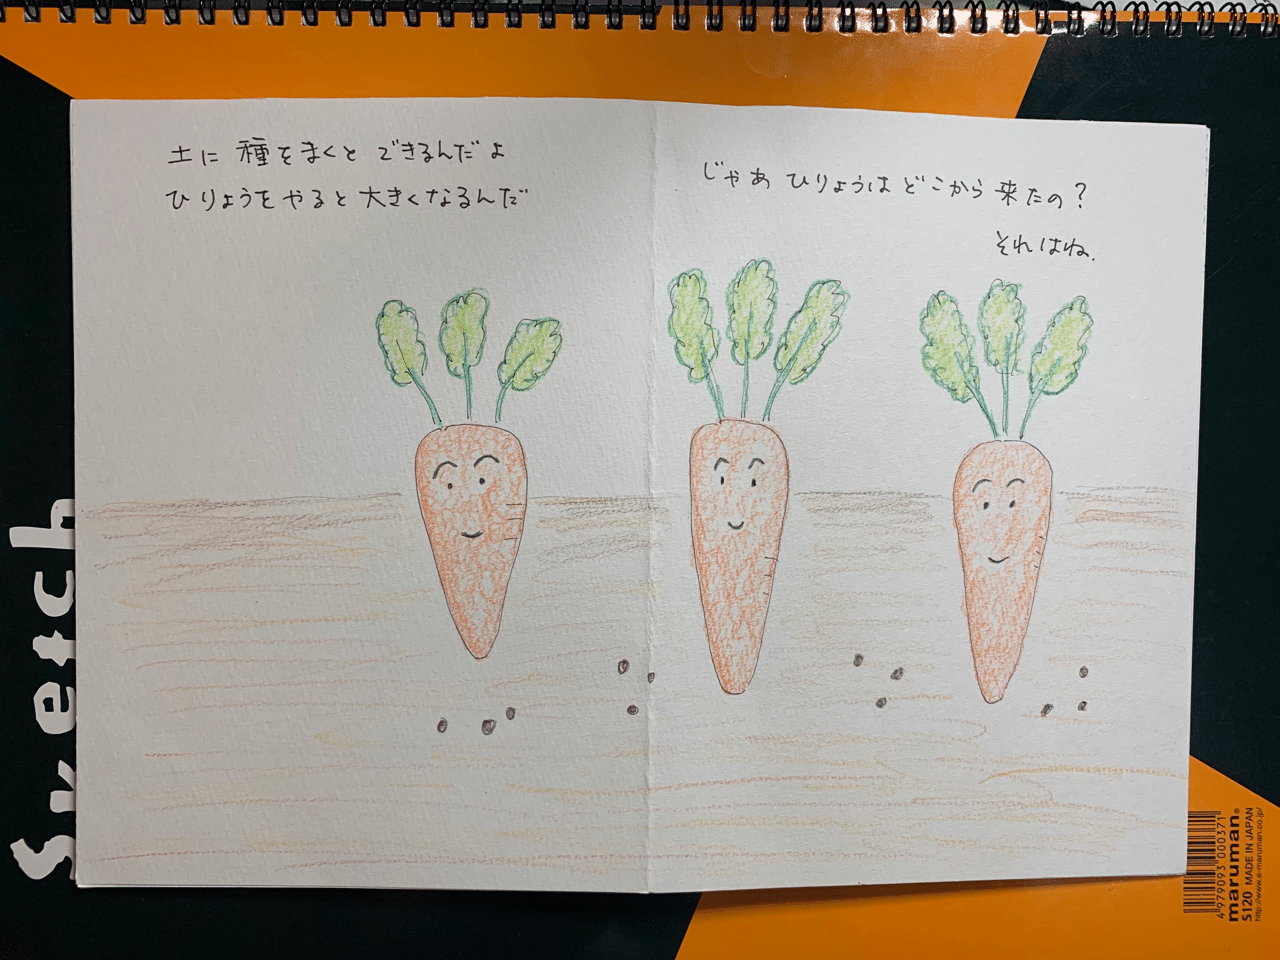 土に種をまくとできるんだよ
ひりょうをやると大きくなるんだ
じゃあ ひりょうはどこから来たの?
それはね.
Sketch
4979093 000371
maruman®
S120 MADE IN JAPAN
http://www.e-maruman.co.jp/